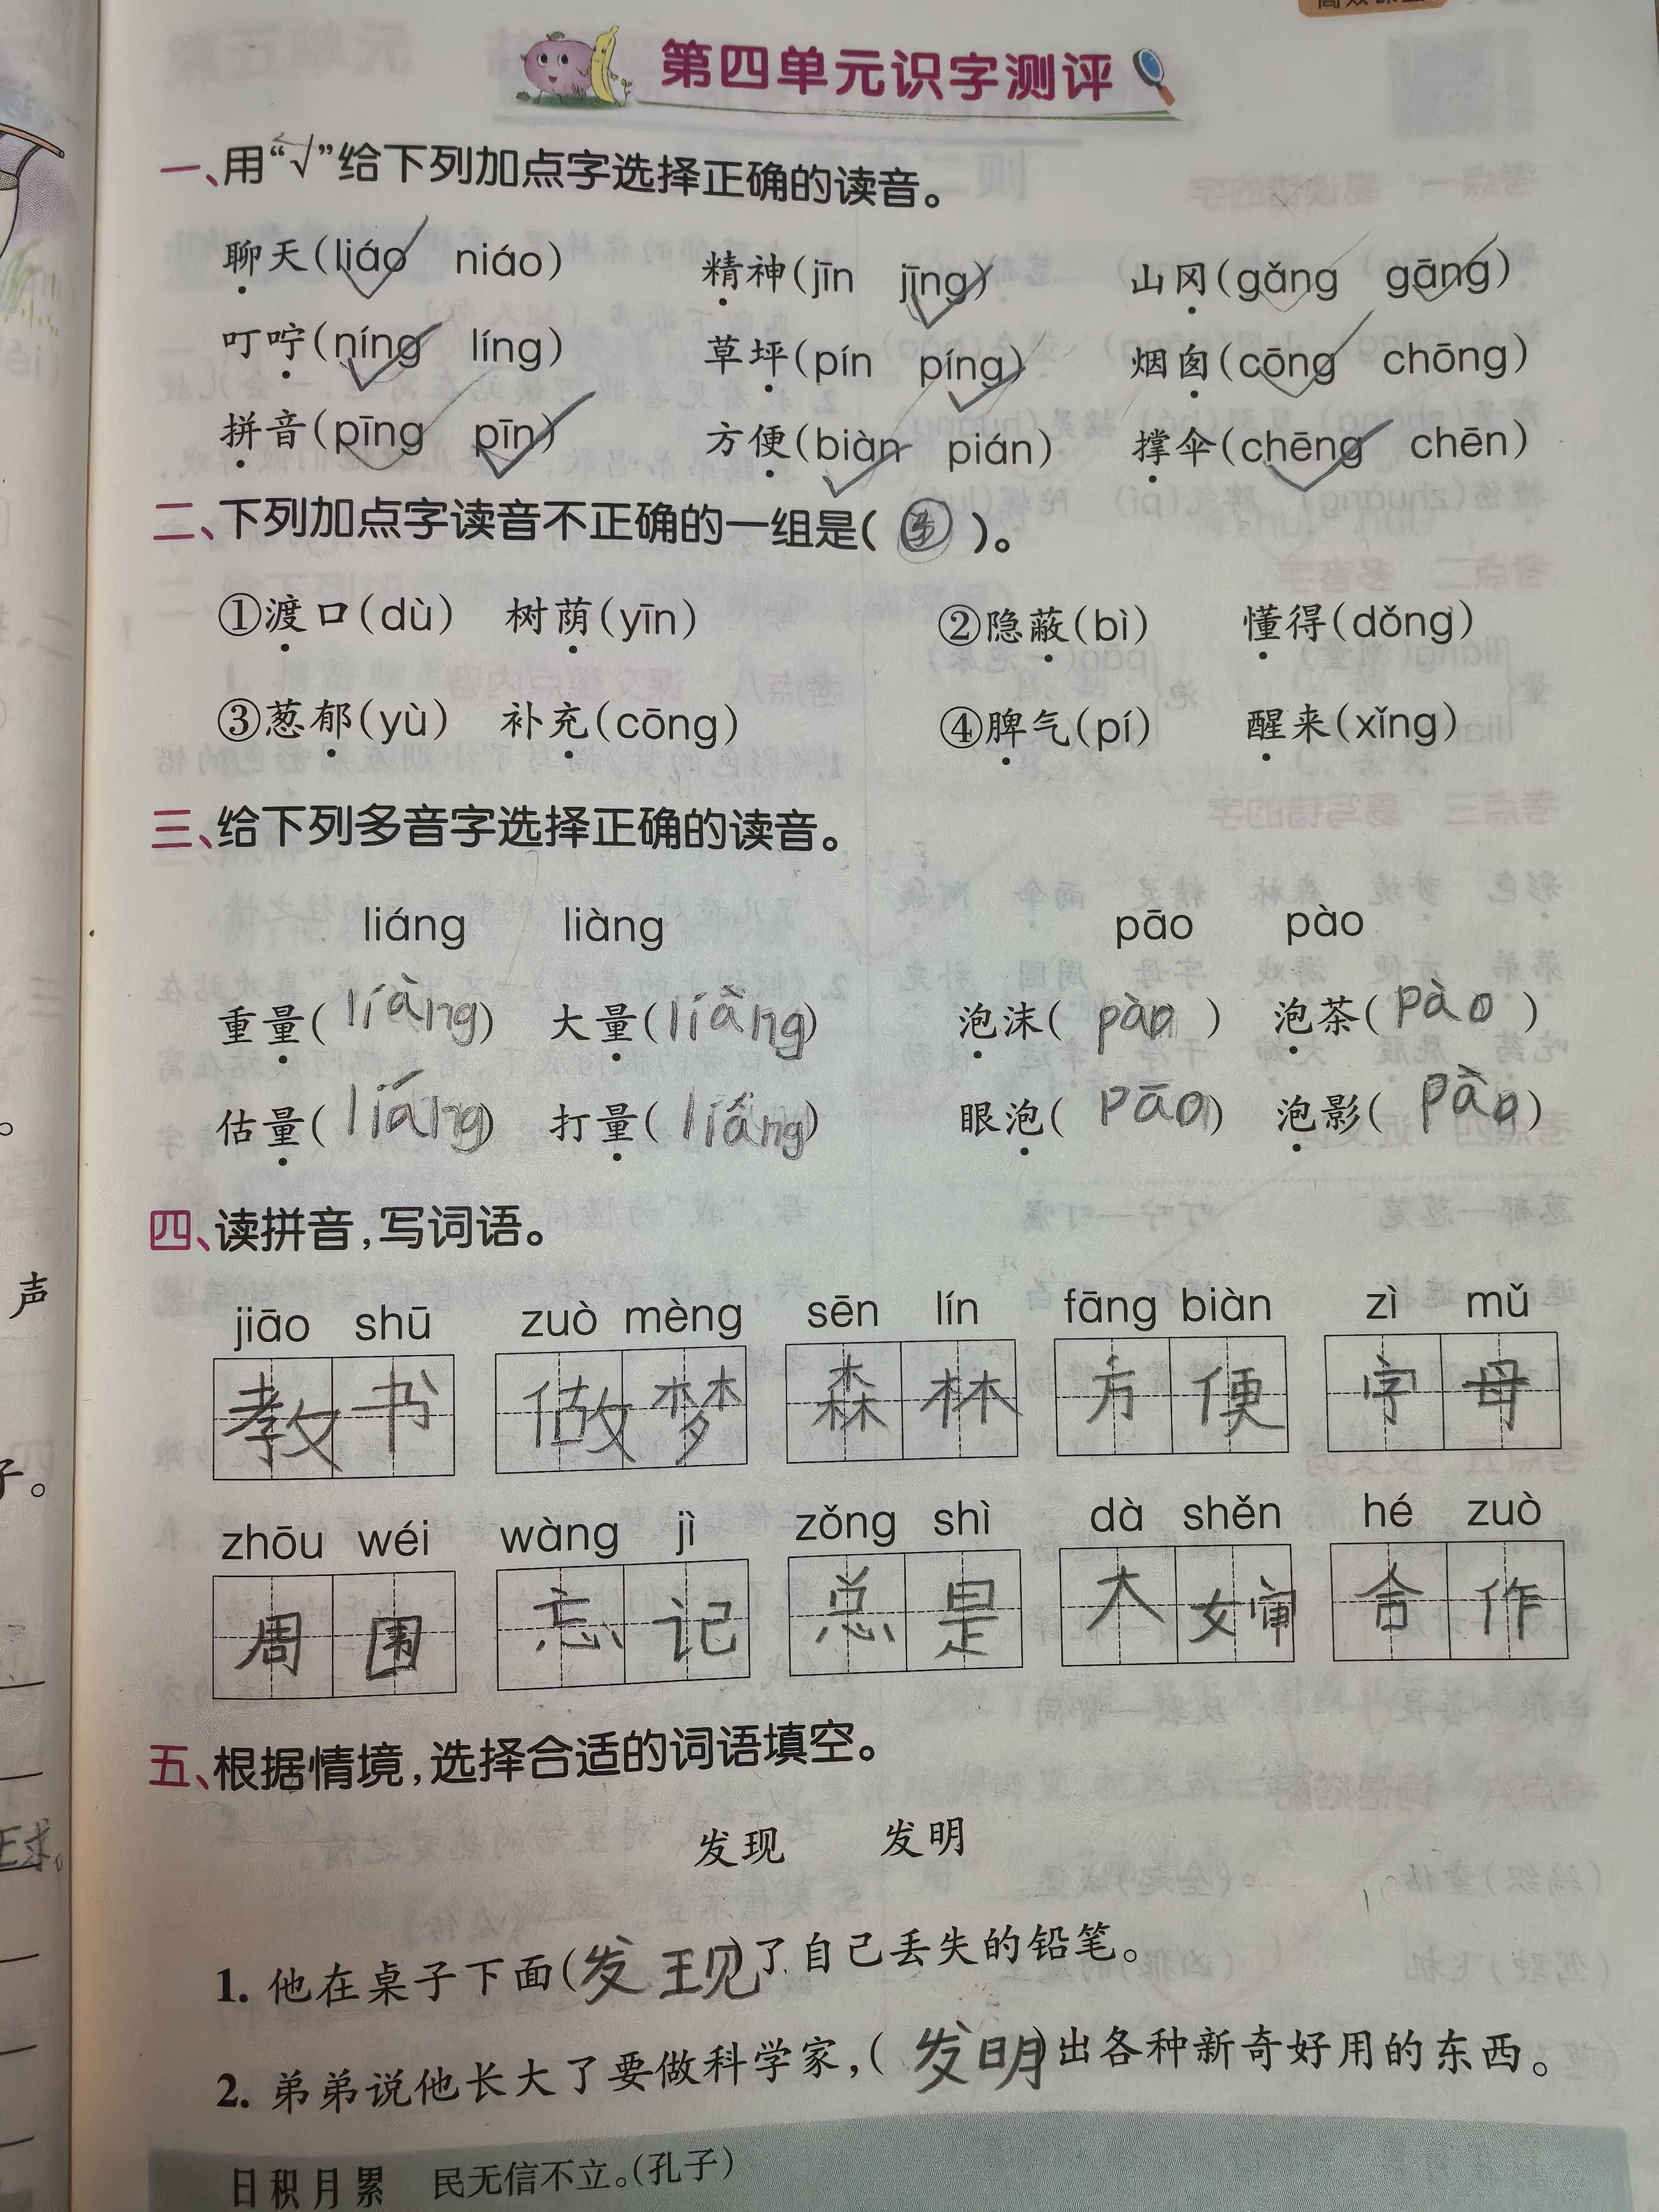 第四单元识字测评
一、用“√”给下列加点字选择正确的读音。
聊天(liáo niáo) 精神(jīn jīng) 山冈(gǎng gāng)
叮咛(níng líng) 草坪(pín píng) 烟囱(cōng chōng)
拼音(pīng pīn) 方便(biàn pián) 撑伞(chēng chēn)
二、下列加点字读音不正确的一组是( )。
①渡口(dù) 树荫(yīn) ②隐蔽(bì) 懂得(dǒng)
③葱郁(yù) 补充(cōng) ④脾气(pí) 醒来(xǐng)
三、给下列多音字选择正确的读音。
liáng liàng pāo pào
重量(liàng) 大量(liàng) 泡沫(pào) 泡茶(pào)
估量(liáng) 打量(liáng) 眼泡(pāo) 泡影(pào)
四、读拼音,写词语。
jiāo shū zuò mèng sēn lín fāng biàn zì mǔ
教书 做梦 森林 方便 字母
zhōu wéi wàng jì zǒng shì dà shěn hé zuò
周围 忘记 总是 大婶 合作
五、根据情境,选择合适的词语填空。
发现 发明
1. 他在桌子下面(发现)了自己丢失的铅笔。
2. 弟弟说他长大了要做科学家,(发明)出各种新奇好用的东西。
日积月累 民无信不立。(孔子)
声
子。